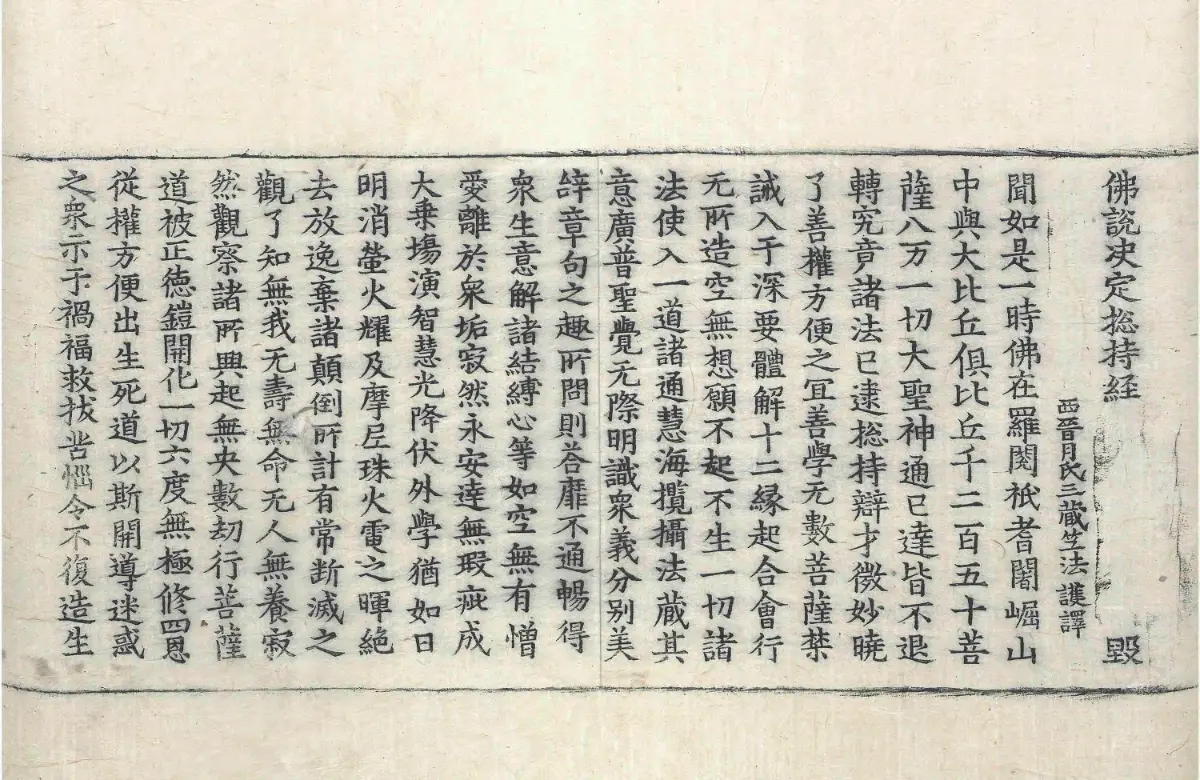 佛說决定揔持經 毀
西晉月氏三藏竺法護譯
聞如是一時佛在羅閱祇耆闍崛山
中與大比丘俱比丘千二百五十菩
薩八万一切大聖神通已達皆不退
轉究竟諸法已逮揔持辯才微妙曉
了善權方便之宜善學无數菩薩禁
誡入于深要體解十二縁起合會行
无所造空無想願不起不生一切諸
法使入一道諸通慧海攬攝法藏其
意廣普聖覺无際明識衆義分别美
辝章句之趣所問則荅靡不通暢得
衆生意解諸結縛心等如空無有憎
愛離於衆垢寂然永安逹無瑕疵成
大乗場演智慧光降伏外學猶如日
明消螢火耀及摩尼珠火電之暉絶
去放逸棄諸顛倒所計有常断滅之
觀了知無我无壽無命无人無養寂
然觀察諸所興起無央數劫行菩薩
道被正德鎧開化一切六度無極修四恩
從權方便出生死道以斯開導迷惑
之衆示于禍福救拔苦惱令不復造生